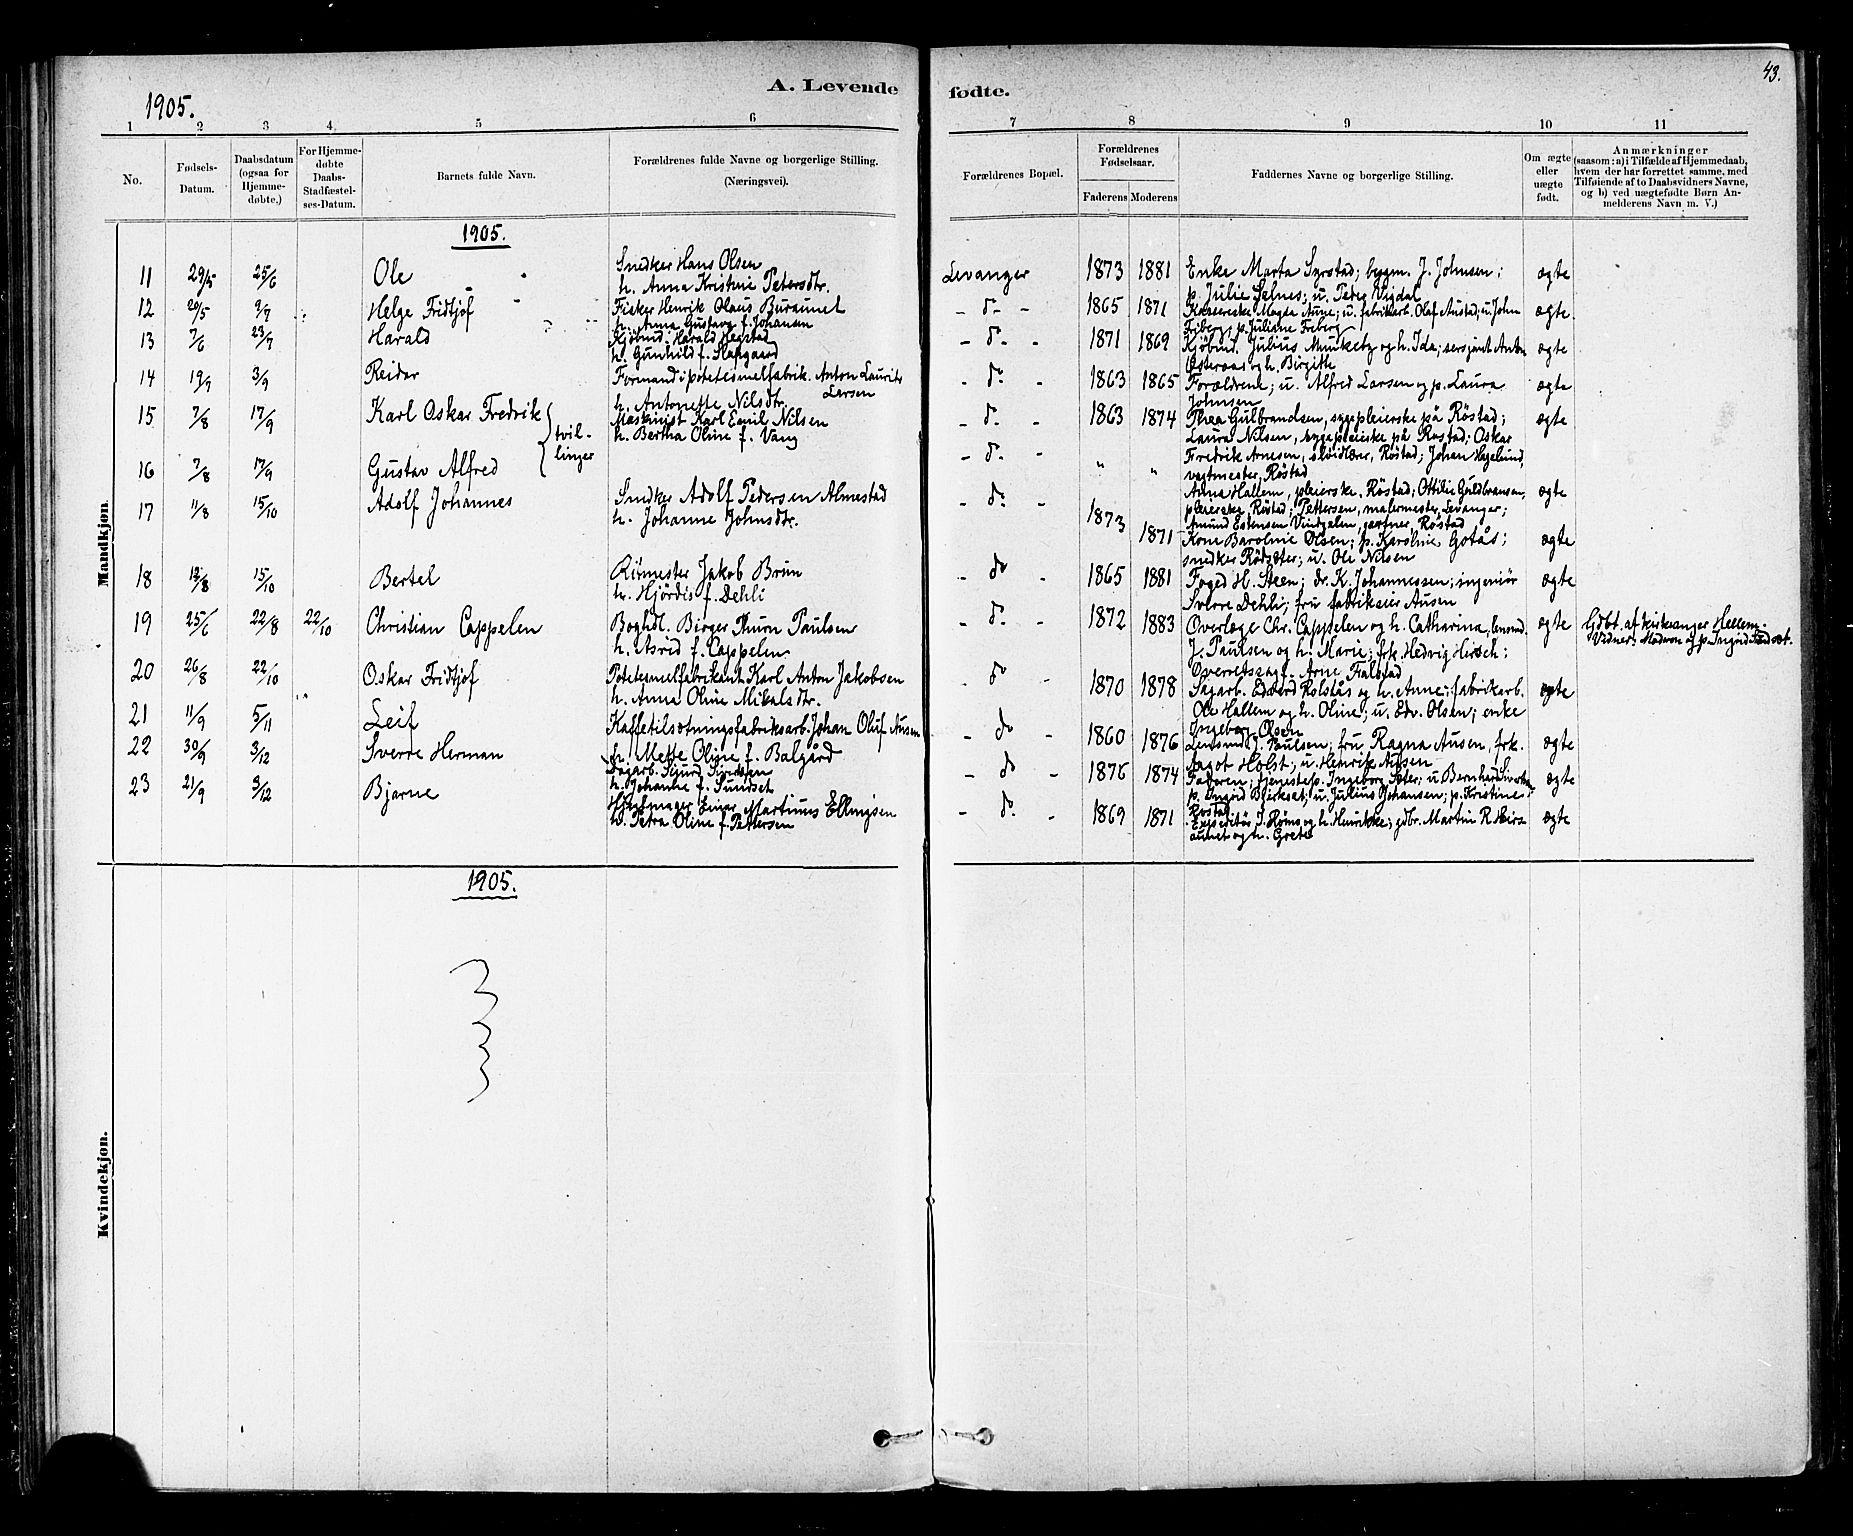 43.
A. Levende fødte.
1905.
1 2 3 4. 5 6 7 8 9 10 11
No.
Fødsels-
Datum.
Daabsdatum
(ogsaa for
Hjemme-
døbte.)
For Hjemme-
døbte
Daabs-
Stadfæstel-
ses-Datum.
Barnets fulde Navn.
Forældrenes fulde Navne og borgerlige Stilling.
(Næringsvei).
Forældrenes Bopæl.
Forældrenes
Fødselsaar.
Faderens Moderens
Faddernes Navne og borgerlige Stilling.
Om ægte
eller
uægte
født.
Anmærkninger
(saasom: a) i Tilfælde af Hjemmedaab,
hvem der har forrettet samme, med
Tilføiende af to Daabsvidners Navne,
og b) ved uægtefødte Børn An-
melderens Navn m. V.)
Mandkjøn.
1905.
11 29/5 25/6 Ole
Snedker Hans Olsen
h. Anna Kristine Petersdtr.
Levanger 1873 1881
Enke Marta Syrstad; byggm. J. Johnsen;
p. Julie Selnes; u. Peder Vigdal
ægte
12 20/5 9/7 Helge Fridtjof
Fisker Henrik Olaus Buraunet
h. Anna Gustava f. Johansen
- do - 1865 1871
Magda Aune; u. fabrikarb. Olaf Austad; u. John
Friberg; p. Juliane Friberg
ægte
13 7/6 23/7 Harald
Kjøbmd. Harald Hegstad
h. Gunhild f. Slapgaard
- do - 1871 1869
Kjøbmd. Julius Munkeby og h. Ida; sersjant Anton
Østeraas og h. Birgitte
ægte
14 19/7 3/9 Reidar
Formand i potetesmelfabrik. Anton Laurits
Larsen
h. Antonette Nilsdtr.
- do - 1863 1865
Forældrene; u. Alfred Larsen og p. Laura
Johnsen
ægte
15 7/8 17/9 Karl Oskar Fredrik
tvil-
linger
Maskinist Karl Emil Nilsen
h. Bertha Oline f. Vang
- do - 1863 1874
Thea Gulbrandsen, sygepleierske på Røstad;
Laura Nilsen, sygepleierske på Røstad; Oskar
Fredrik Arnesen, sløidlærer, Røstad; Johan Hagelund,
vagtmester, Røstad
ægte
16 7/8 17/9 Gustav Alfred
- do - " "
Anna Hallem, pleierske, Røstad; Ottilie Guldbransen,
pleierske, Røstad; Pettersen, malermester, Levanger;
Amund Estensen Vindgelen, gartner, Røstad
ægte
17 11/8 15/10 Adolf Johannes
Snedker Adolf Pedersen Almestad
h. Johanne Johnsdtr.
- do - 1873 1871
Kone Baroline Olsen; p. Karoline Gotås;
snedker Rødsæter; u. Ole Nilsen
ægte
18 12/8 15/10 Bertel
Rørmester Jakob Brun
h. Hjördis f. Dehli
- do - 1865 1881
Foged H. Steen; dr. K. Johannessen; ingeniør
Sverre Dehli; fru fabrikeier Ausen
ægte
19 25/6 22/8 22/10 Christian Cappelen
Boghdl. Birger Thurn Paulsen
h. Astrid f. Cappelen
- do - 1872 1883
Overlæge Chr. Cappelen og h. Catharina, lensmd.
J. Paulsen og h. Marie; frk. Hedvig Hersch;
Overretssagf. Arne Falstad
ægte
Hdbt. af kirkesanger Hellem.
Vidner: og p. Ingrid
20 26/8 22/10 Oskar Fridtjof
Potetesmelfabrikant Karl Anton Jakobsen
h. Anna Oline Mikalsdtr.
do 1870 1878
Sagarb. Edvard Rolstås og h. Anne; fabrikarb.
Ole Hallem og h. Oline; u. Edv. Olsen; enke
Ingeborg Olsen
ægte
21 11/9 5/11 Leif
Kaffetilsetningsfabriksarb. Johan Oluf Ausen
h. Mette Oline f. Balgård
- do - 1860 1876
Lensmd. J. Paulsen; fru Ragna Ausen, frk.
Aagot Holst; u. Henrik Nilsen
ægte
22 30/9 3/12 Sverre Herman
Dagarb. Sjurd Sivertsen
h. Johanne f. Sundset
- do - 1876 1874
Faderen; tjenestep. Ingeborg Sæter; u. Bernhard
p. Ingrid Bjerkset; u. Julius Johansen; p. Kristine
Rostad
ægte
23 21/9 3/12 Bjarne
Einar Martinus Ellingsen
h. Petra Oline f. Pettersen
- do - 1869 1871
Expeditør J. Holms og h. Henrikke; gdbr. Martin R.
aunet og h. Grete
ægte
Kvindekjøn.
1905.